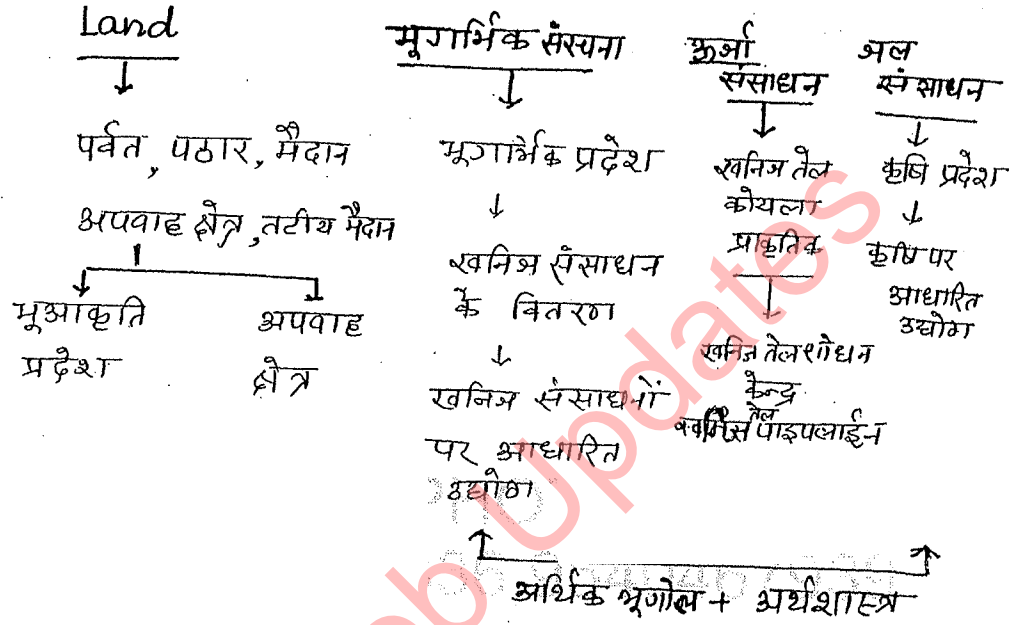 Land
पर्वत, पठार, मैदान
अपवाह क्षेत्र, तटीय मैदान
भूआकृति
प्रदेश
अपवाह
क्षेत्र
भूगर्भिक संरचना
भूगर्भिक प्रदेश
खनिज संसाधन
के वितरण
खनिज संसाधनों
पर आधारित
उद्योग
ऊर्जा
संसाधन
खनिज तेल
कोयला
प्राकृतिक
खनिज तेल शोधन
केन्द्र
तेल
पाइपलाईन
जल
संसाधन
कृषि प्रदेश
कृषि पर
आधारित
उद्योग
आर्थिक भूगोल + अर्थशास्त्र
Updates